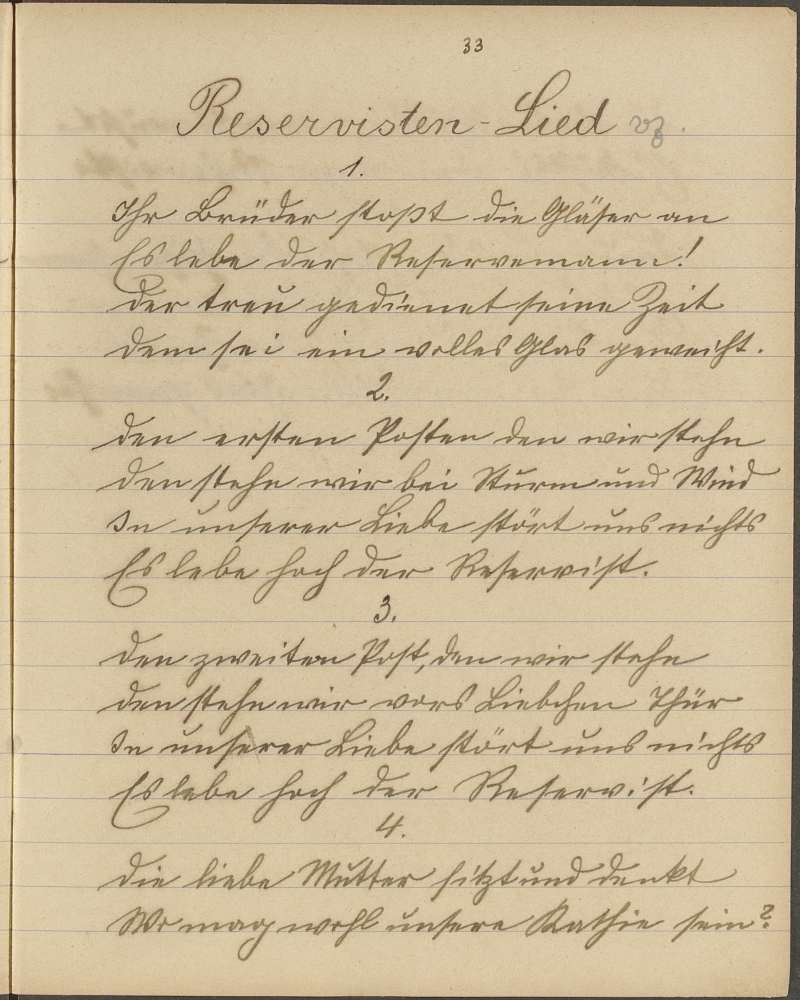 33
Reservisten-Lied
1.
Ihr Brüder stoßt die Gläser an
Es lebe der Reservemann!
Der treu gedienet seine Zeit
Dem sei ein volles Glas geweiht.
2.
Den ersten Posten den wir stehn
Den stehn wir bei Sturm und Wind
In unserer Liebe stört uns nichts
Es lebe hoch der Reservist.
3.
Den zweiten Post, den wir stehn
Den stehn wir vors Liebchen Thür
In unserer Liebe stört uns nichts
Es lebe hoch der Reservist.
4.
Die liebe Mutter sitzt und denkt
Wo mag wohl unsere Kathie sein?